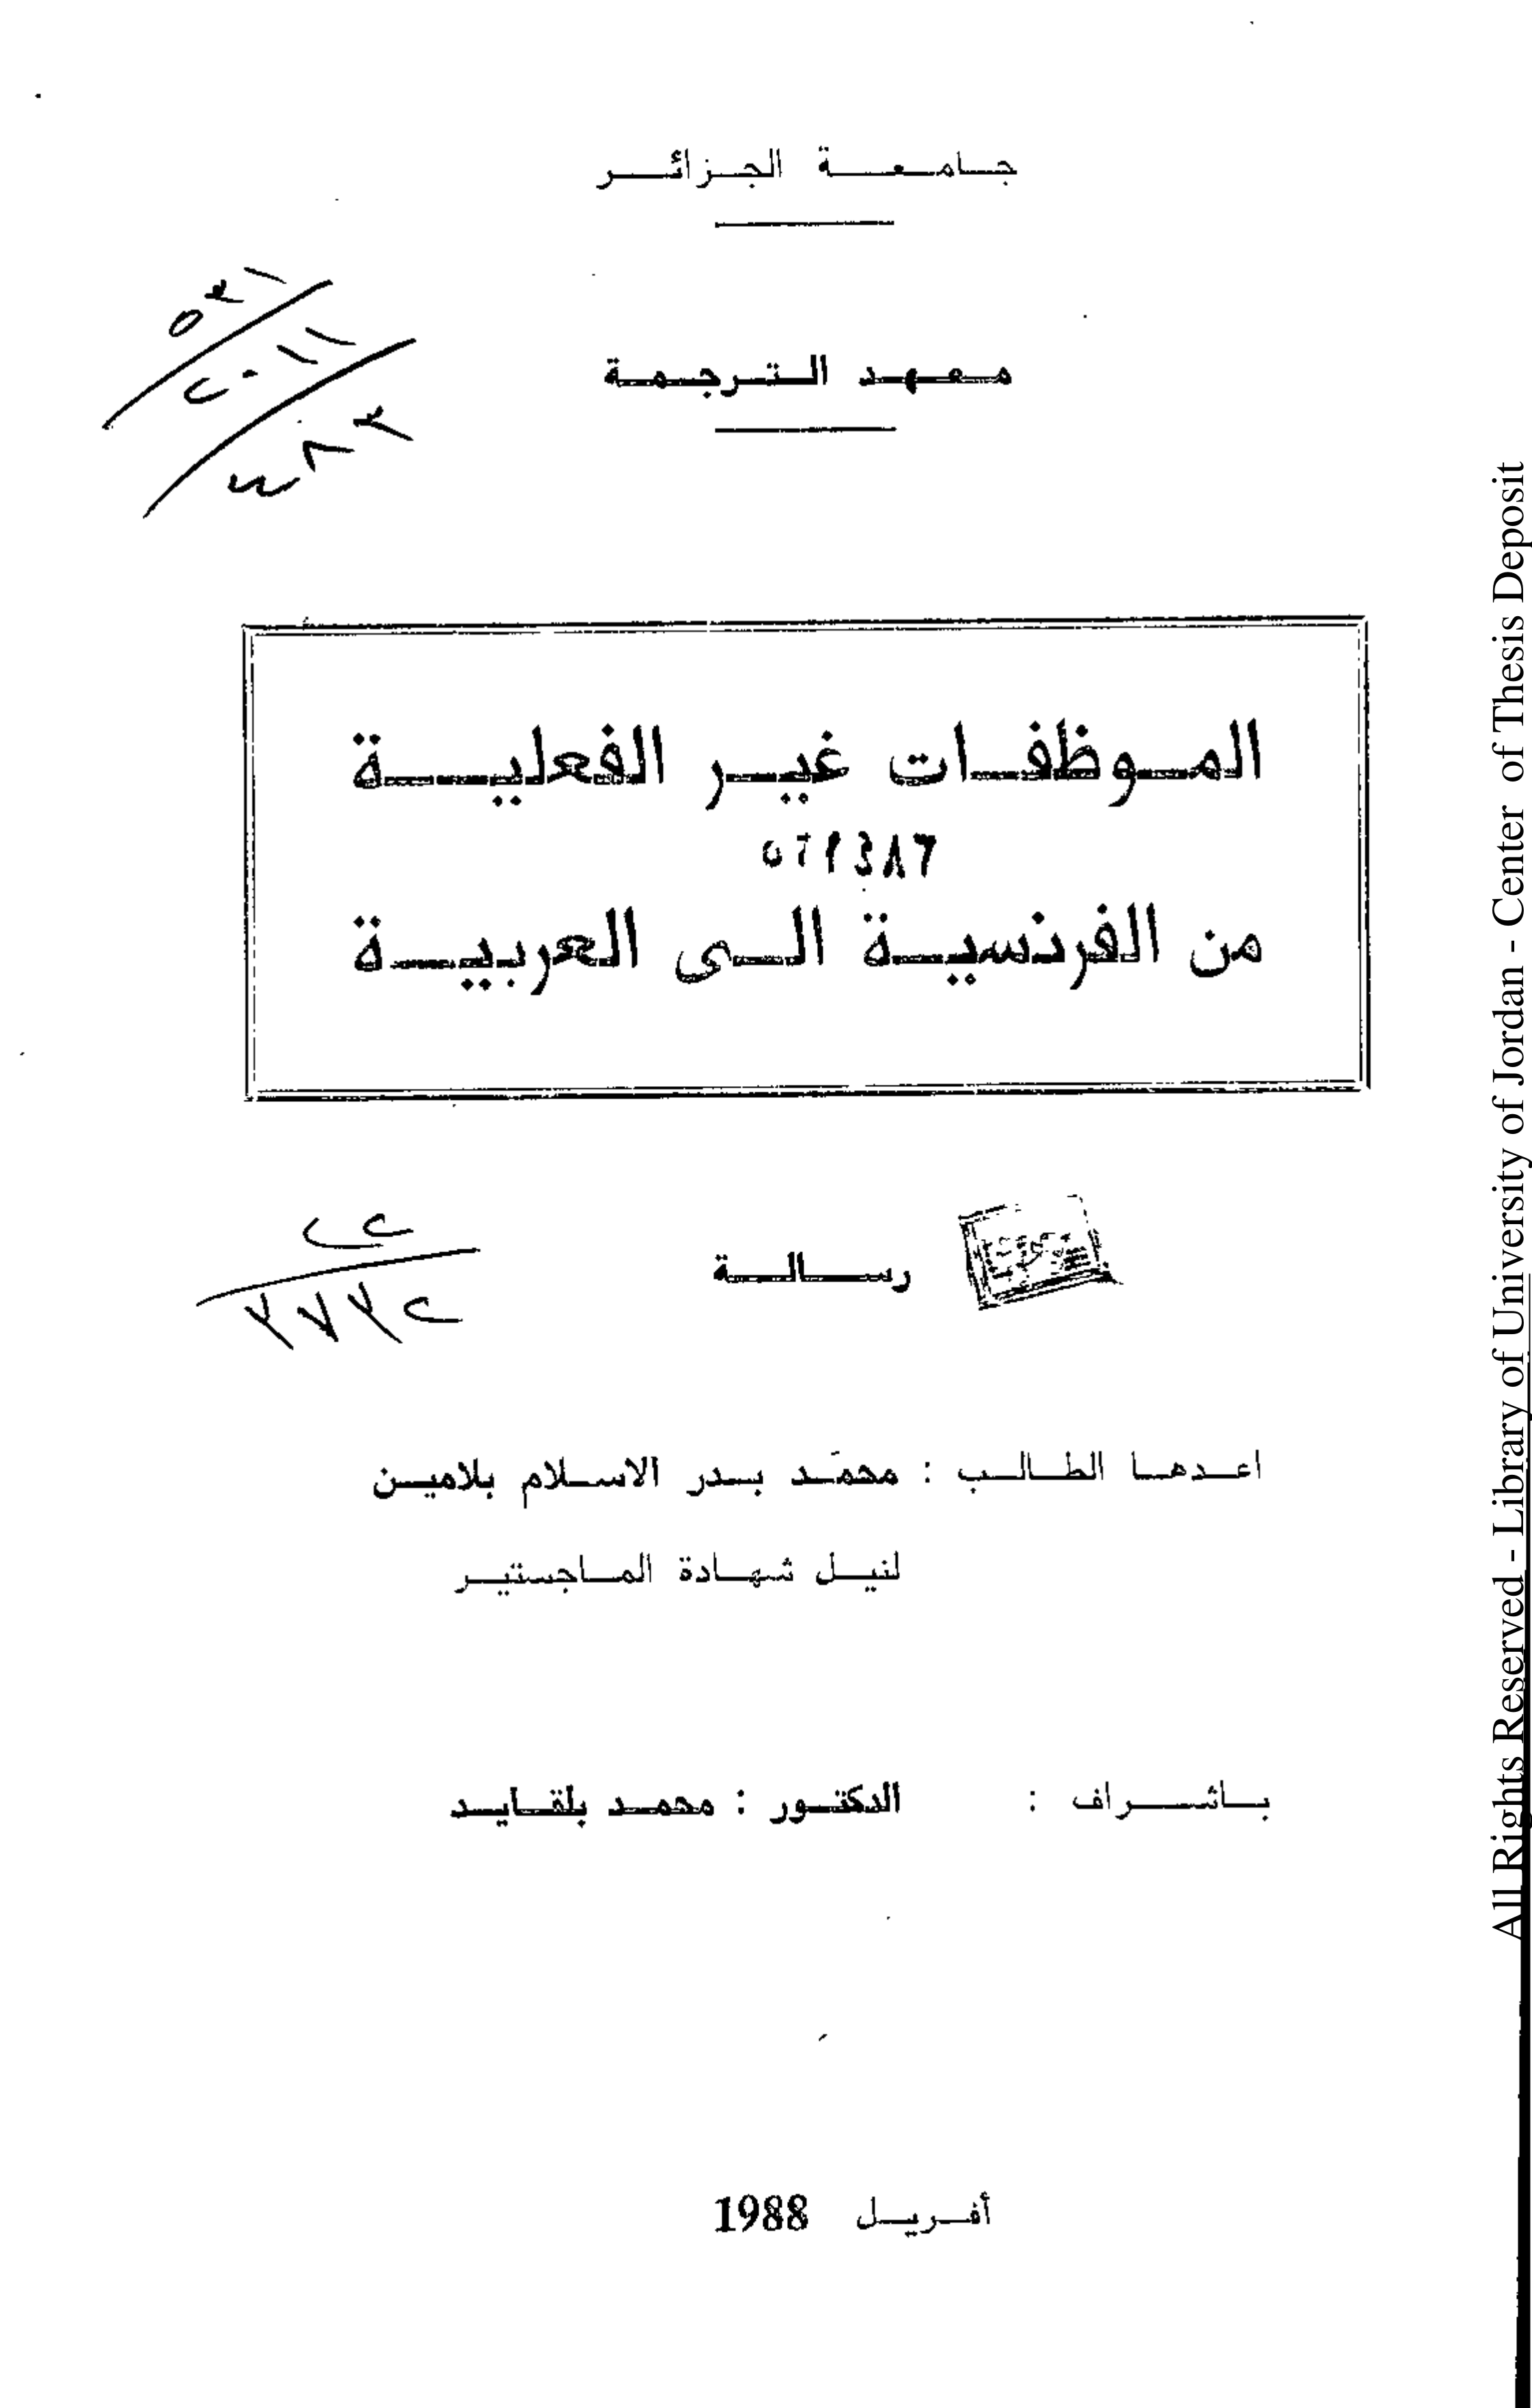 جامعة الجزائر
معهد الترجمة
الموظفات غير الفعلية
من الفرنسية الى العربية
رسالة
اعدها الطالب : محمّد بدر الاسلام بلامين
لنيل شهادة الماجستير
باشراف : الدكتور : محمد بلقايد
أفريل 1988
All Rights Reserved - Library of University of Jordan - Center of Thesis Deposit